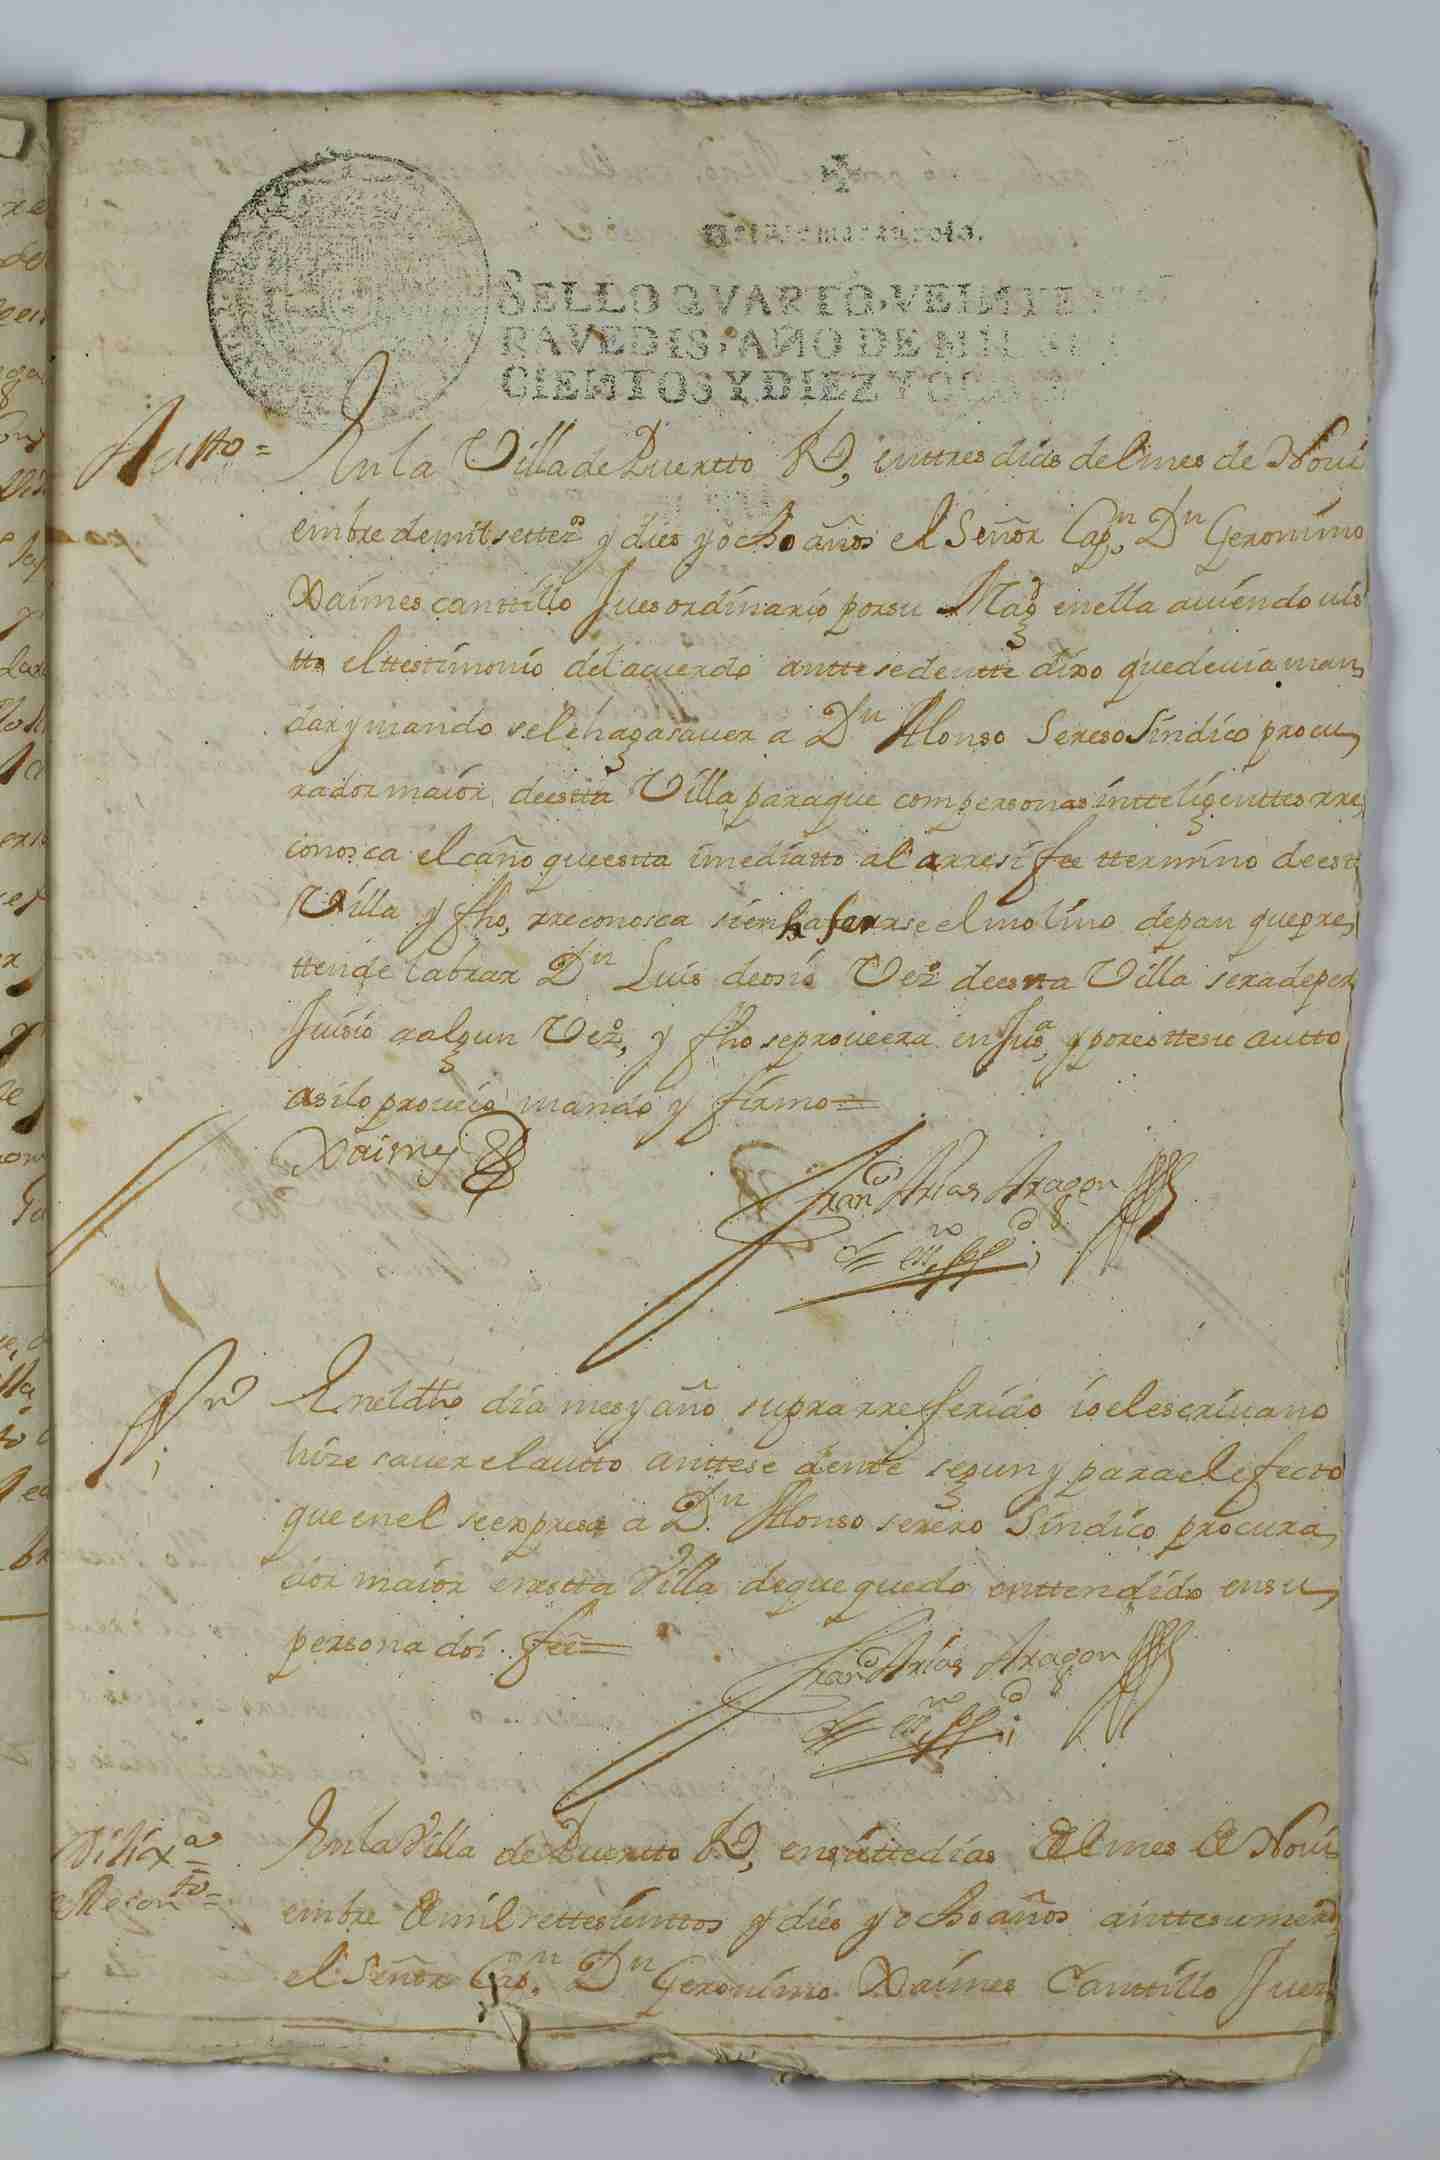 Veinte maravedis.
SELLO QVARTO, VEINTE MA
RAVEDIS, AÑO DE MIL SETE
CIENTOS Y DIEZ Y OCHO
Autto =
En la Villa de Puertto Rl, en ttres dias del mes de Novi
embre de mil settezos y dies y ocho años el Señor Capn Dn Geronimo
Xaimes canttillo Jues ordinario por su Magd en ella auiendo uis
tto el ttestimonio del acuerdo anttesedentte dixo que deuia man
dar y mando se le haga sauer a Dn Alonso Sereso Sindico procu
rador maior deestta Villa para que com personas intteligenttes rre
conosca el caño que estta imediatto al arresife ttermino deestt
Villa y fho, rreconosca si em labrarse el molino de pan que pre
ttende labrar Dn Luis de osio Vezo deestta Villa sera de per
Juisio a algun Vezo, y fho se proueera en Jusa, y por estte su autto
asi lo proueio mando y firmo =
Xaimes
Franco Arias Aragon
essno ppco
En el dho dia mes y año supra rreferido io el escriuano
hize sauer el autto anttesedente segun y para el efecto
que en el se expresa a Dn Alonso serero Sindico procura
dor maior en estta Villa de que quedo enttendido en su
persona doi fee =
Franco Arias Aragon
essno ppco
Dilixa =
Reconto =
En la Villa de Puertto Rl, en siette dias del mes de Novi
embre de mil settesienttos y dies y ocho años antte su merd
el Señor Capn. Dn Geronimo Xaimes Canttillo Juez